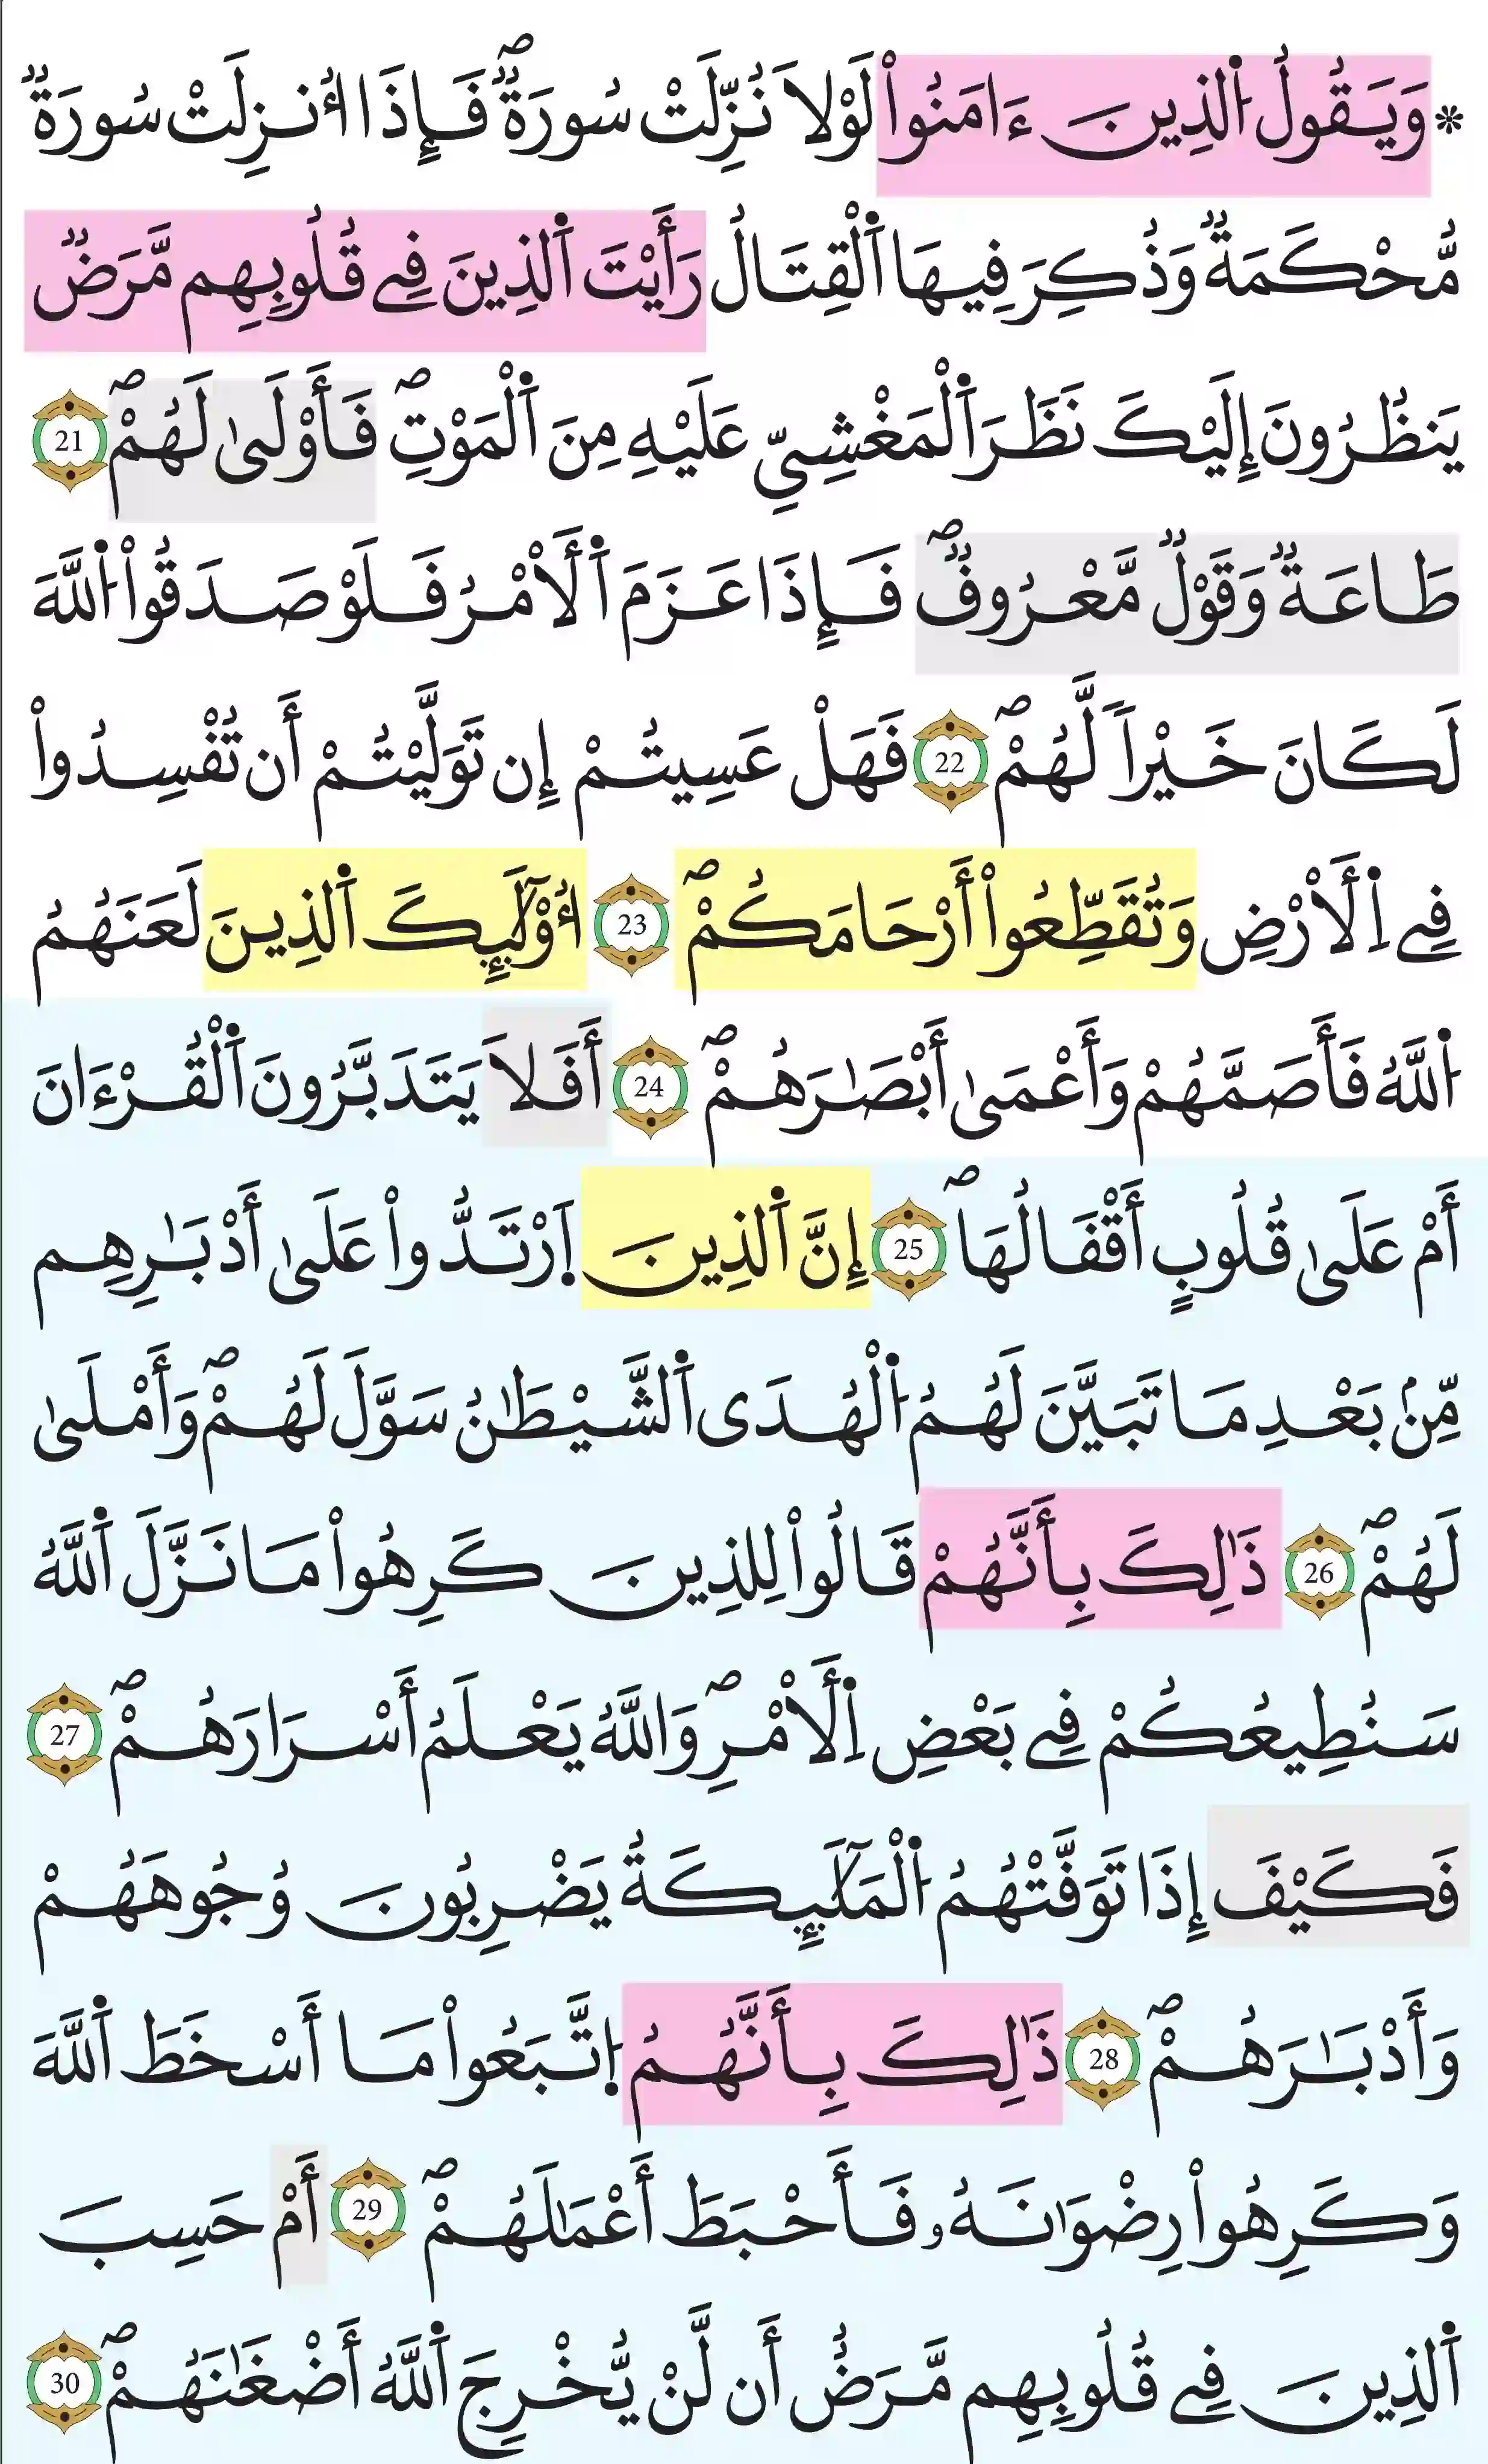 * وَيَقُولُ اُ۬لذِينَ ءَامَنُواْ لَوْلَا نُزِّلَتْ سُورَةٞۖ فَإِذَا أُنزِلَتْ سُورَةٞ
مُّحْكَمَةٞ وَذُكِرَ فِيهَا اَ۬لْقِتَالُ رَأَيْتَ اَ۬لذِينَ فِے قُلُوبِهِم مَّرَضٞ
يَنظُرُونَ إِلَيْكَ نَظَرَ اَ۬لْمَغْشِيِّ عَلَيْهِ مِنَ اَ۬لْمَوْتِۖ فَأَوْلَىٰ لَهُمْۖ 21
طَاعَةٞ وَقَوْلٞ مَّعْرُوفٞۖ فَإِذَا عَزَمَ اَ۬لَامْرُ فَلَوْ صَدَقُواْ اُ۬للَّهَ
لَكَانَ خَيْراٗ لَّهُمْۖ 22 فَهَلْ عَسِيتُمْ إِن تَوَلَّيْتُمْ أَن تُفْسِدُواْ
فِے اِ۬لَارْضِ وَتُقَطِّعُواْ أَرْحَامَكُمْۖ 23 أُوْلَٰٓئِكَ اَ۬لذِينَ لَعَنَهُمُ
اُ۬للَّهُ فَأَصَمَّهُمْ وَأَعْمَىٰ أَبْصَٰرَهُمْۖ 24 أَفَلَا يَتَدَبَّرُونَ اَ۬لْقُرْءَانَ
أَمْ عَلَىٰ قُلُوبٍ أَقْفَالُهَاۖ 25 إِنَّ اَ۬لذِينَ اَ۪رْتَدُّواْ عَلَىٰ أَدْبَٰرِهِم
مِّنۢ بَعْدِ مَا تَبَيَّنَ لَهُمُ اُ۬لْهُدَى اَ۬لشَّيْطَٰنُ سَوَّلَ لَهُمْۖ وَأَمْلَىٰ
لَهُمْۖ 26 ذَٰلِكَ بِأَنَّهُمْ قَالُواْ لِلذِينَ كَرِهُواْ مَا نَزَّلَ اَ۬للَّهُ
سَنُطِيعُكُمْ فِے بَعْضِ اِ۬لَامْرِۖ وَاللَّهُ يَعْلَمُ أَسْرَارَهُمْۖ 27
فَكَيْفَ إِذَا تَوَفَّتْهُمُ اُ۬لْمَلَٰٓئِكَةُ يَضْرِبُونَ وُجُوهَهُمْ
وَأَدْبَٰرَهُمْۖ 28 ذَٰلِكَ بِأَنَّهُمُ اُ۪تَّبَعُواْ مَا أَسْخَطَ اَ۬للَّهَ
وَكَرِهُواْ رِضْوَٰنَهُۥ فَأَحْبَطَ أَعْمَٰلَهُمْۖ 29 أَمْ حَسِبَ
اَ۬لذِينَ فِے قُلُوبِهِم مَّرَضٌ أَن لَّنْ يُّخْرِجَ اَ۬للَّهُ أَضْغَٰنَهُمْۖ 30